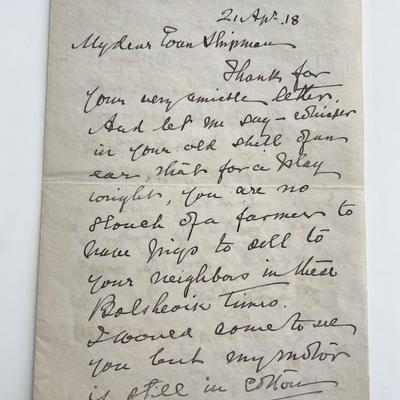 21 Apr. 18
My dear Evan Shipman
Thanks for
your very amiable letter.
And let me say – whisper
in your old shell of an
ear, that for a Play
wright, you are no
slouch of a farmer to
have pigs to sell to
your neighbors in these
Bolshevik times.
I would come to see
you but my motor
is still in cotton